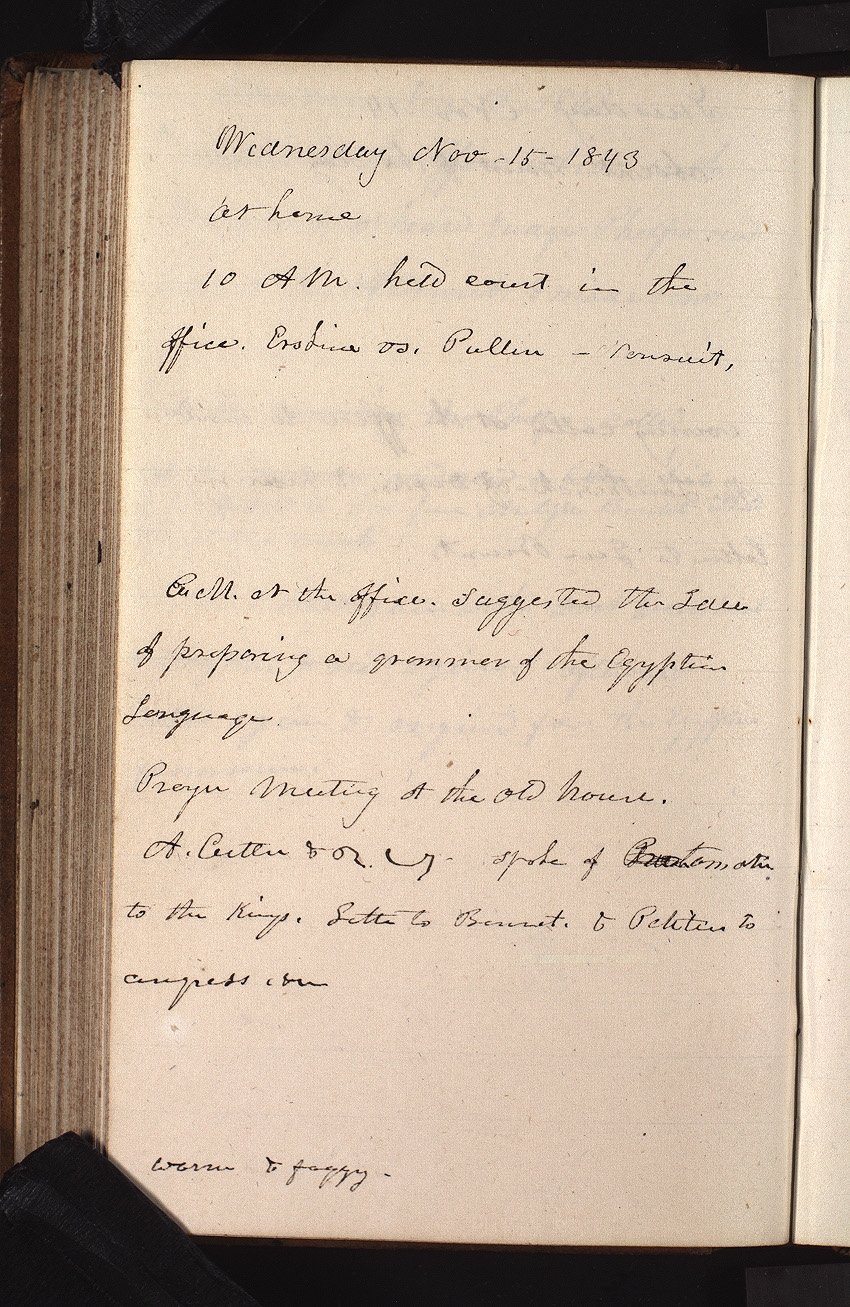 Wednesday Nov - 15 - 1843
at home
10 A M. held court in the
office. Erskine vs. Pullen - Nonsuit,
P.M. at the office. suggested the Idea
of preparing a grammar of the Egyptian
Language.
Prayer Meeting at the old house.
A. Cutler & spoke of
to the Kings. Letter to Bennet. & Petition to
congress
warm & foggy -